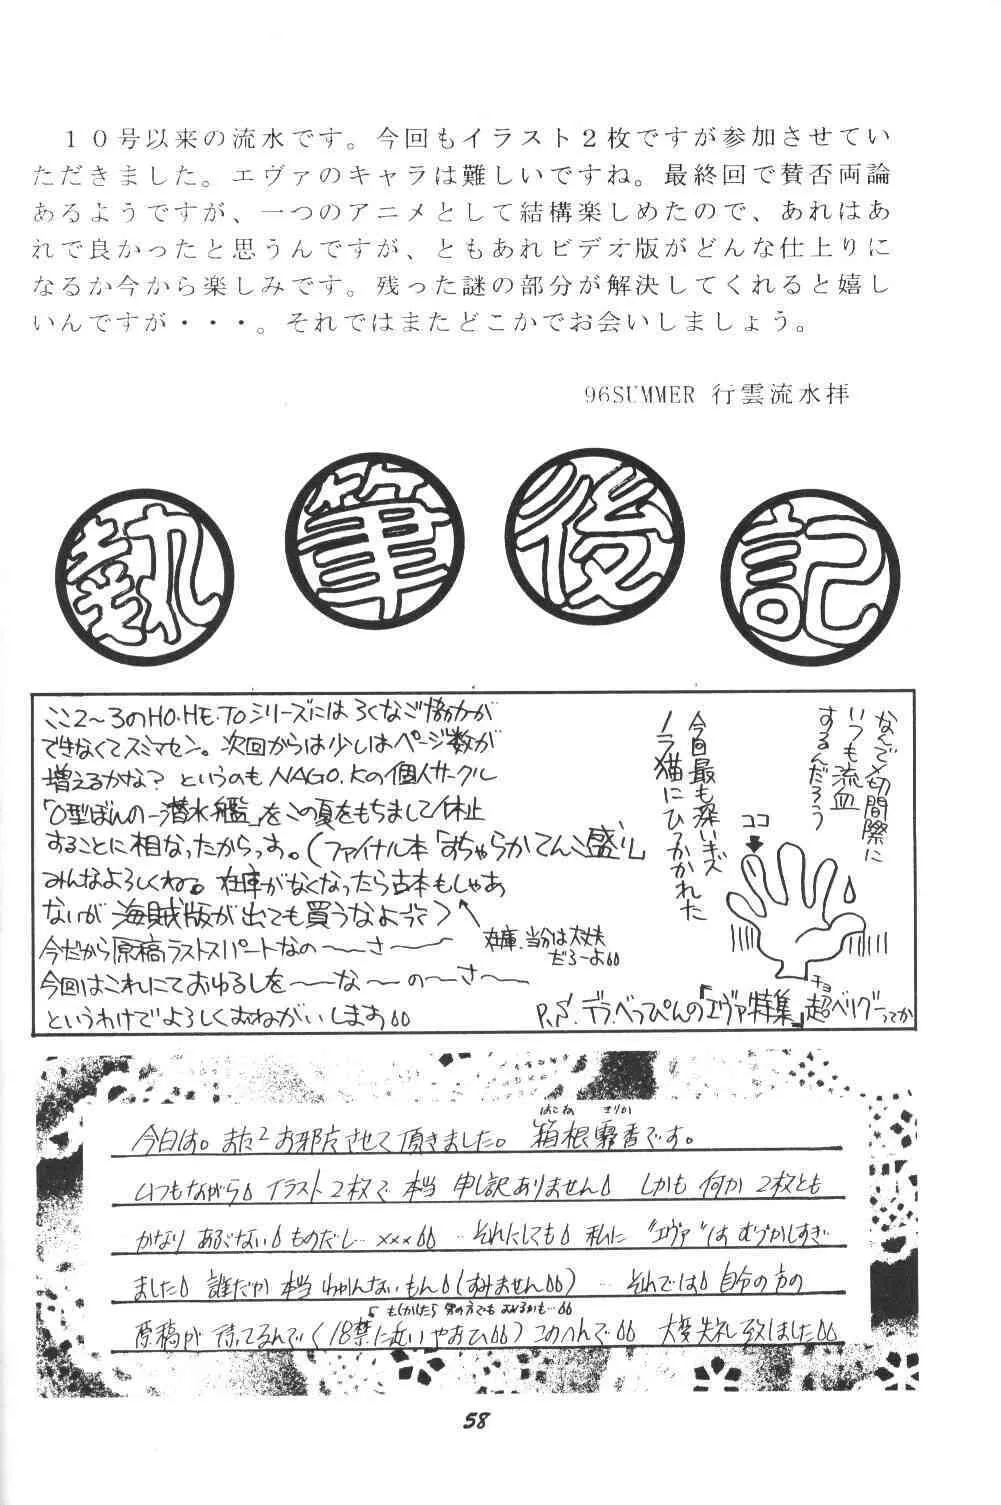 １０号以来の流水です。今回もイラスト２枚ですが参加させてい
ただきました。エヴァのキャラは難しいですね。最終回で賛否両論
あるようですが、一つのアニメとして結構楽しめたので、あれはあ
れで良かったと思うんですが、ともあれビデオ版がどんな仕上りに
なるか今から楽しみです。残った謎の部分が解決してくれると嬉し
いんですが・・・。それではまたどこかでお会いしましょう。
96SUMMER 行雲流水拝
執筆後記
ここ2〜3のHO・HE・TOシリーズにはろくなご協力が
できなくてスミマセン。次回からは少しはページ数が
増えるかな? というのも NAGO.Kの個人サークル
「O型ぼんの一潜水艦」をこの夏をもちまして休止
することに相なったからっす。(ファイナル本「おちゃらかてんこ盛り」
みんなよろしくね。在庫がなくなったら古本もしゃあ
ないが海賊版が出ても買うなよってて)
在庫、当分は大丈夫
だろーよ
今だから原稿ラストスパートなの〜〜さ〜〜
今回はこれにておゆるしを〜〜な〜〜の〜さ〜〜
というわけでよろしくおねがいします
なんで〆切間際に
いつも流血
するんだろう
ココ
今回最も深いキズ
ノラ猫にひっかかれた
P.S. デラべっぴんの「エヴァ特集」超ベリグーってか
チョ
はこね
今日は。また2お邪魔させて頂きました。箱根霧香です。
いつもながら イラスト2枚で 本当 申し訳ありません しかも 何か 2枚とも
かなり あぶない ものだし… ×××  …それにしても 私に "エヴァ"は むづかしすぎ
ました 誰だか 本当 わかんないもん (すみません) …それでは 自分の方の
もしかしたら 男の方でも
原稿が 待ってるんで (18禁に近いやおひ) このへんで 大変失礼致しました
58